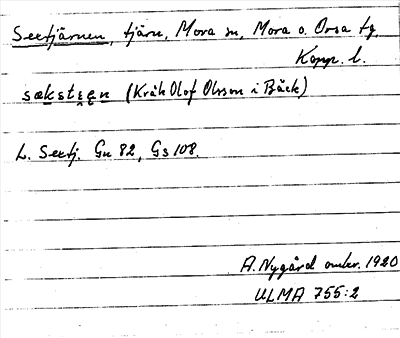 Sextjärnen, tjärn, Mora sn, Mora o. Orsa tg.
Kopp. l.
sækstɛ̣ɛ̣n (Kråk Olof Olsson i Bäck)
L. Sextj. Gu 82, Gs 108.
A. Nygård omkr. 1920
ULMA 755:2